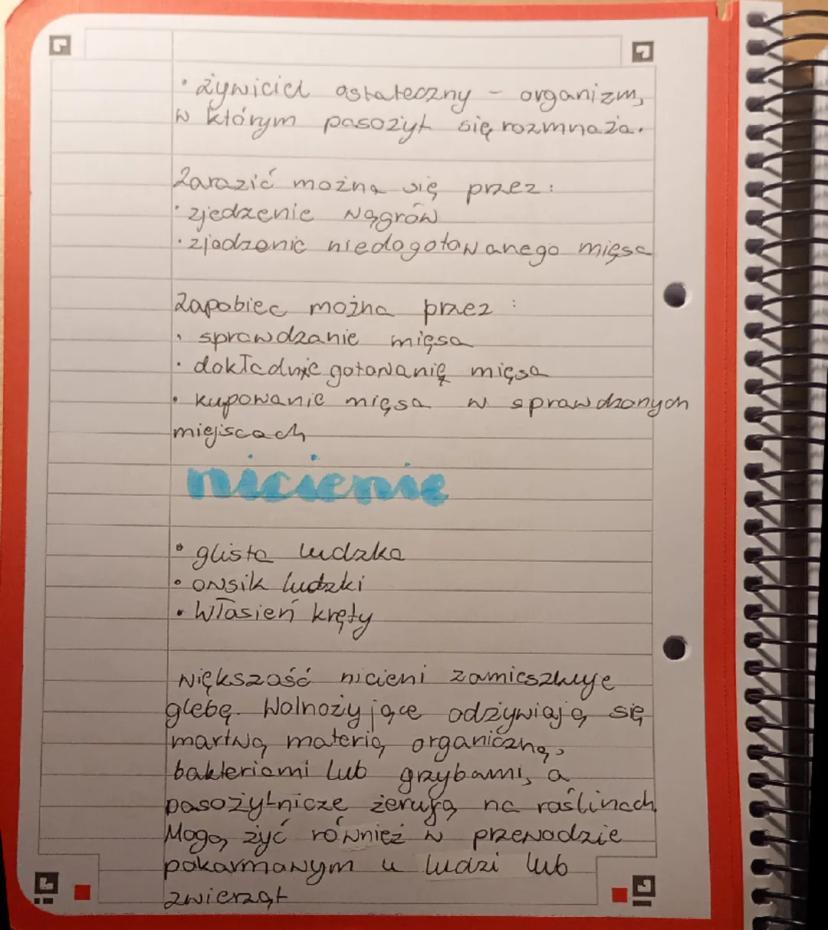 · żywiciel ostateczny - organizm,
w którym pasożyt się rozmnaża.
Zarazić można się przez:
· zjedzenie wągrów
· zjedzenie niedogotowanego mięsa
Zapobiec można przez:
· sprawdzanie mięsa
· dokładnie gotowanię mięsa
· kupowanie mięsa w sprawdzonych
miejscach
nicienie
· glista ludzka
· owsik ludzki
· Własień kręty
większość nicieni zamieszkuje
glebę. Wolnożyjące odżywiają się
martwą materią organiczną,
bakteriami lub grzybami, a
pasożytnicze żerują na roślinach.
Mogą żyć również w przewodzie
pokarmowym u ludzi lub
zwierząt